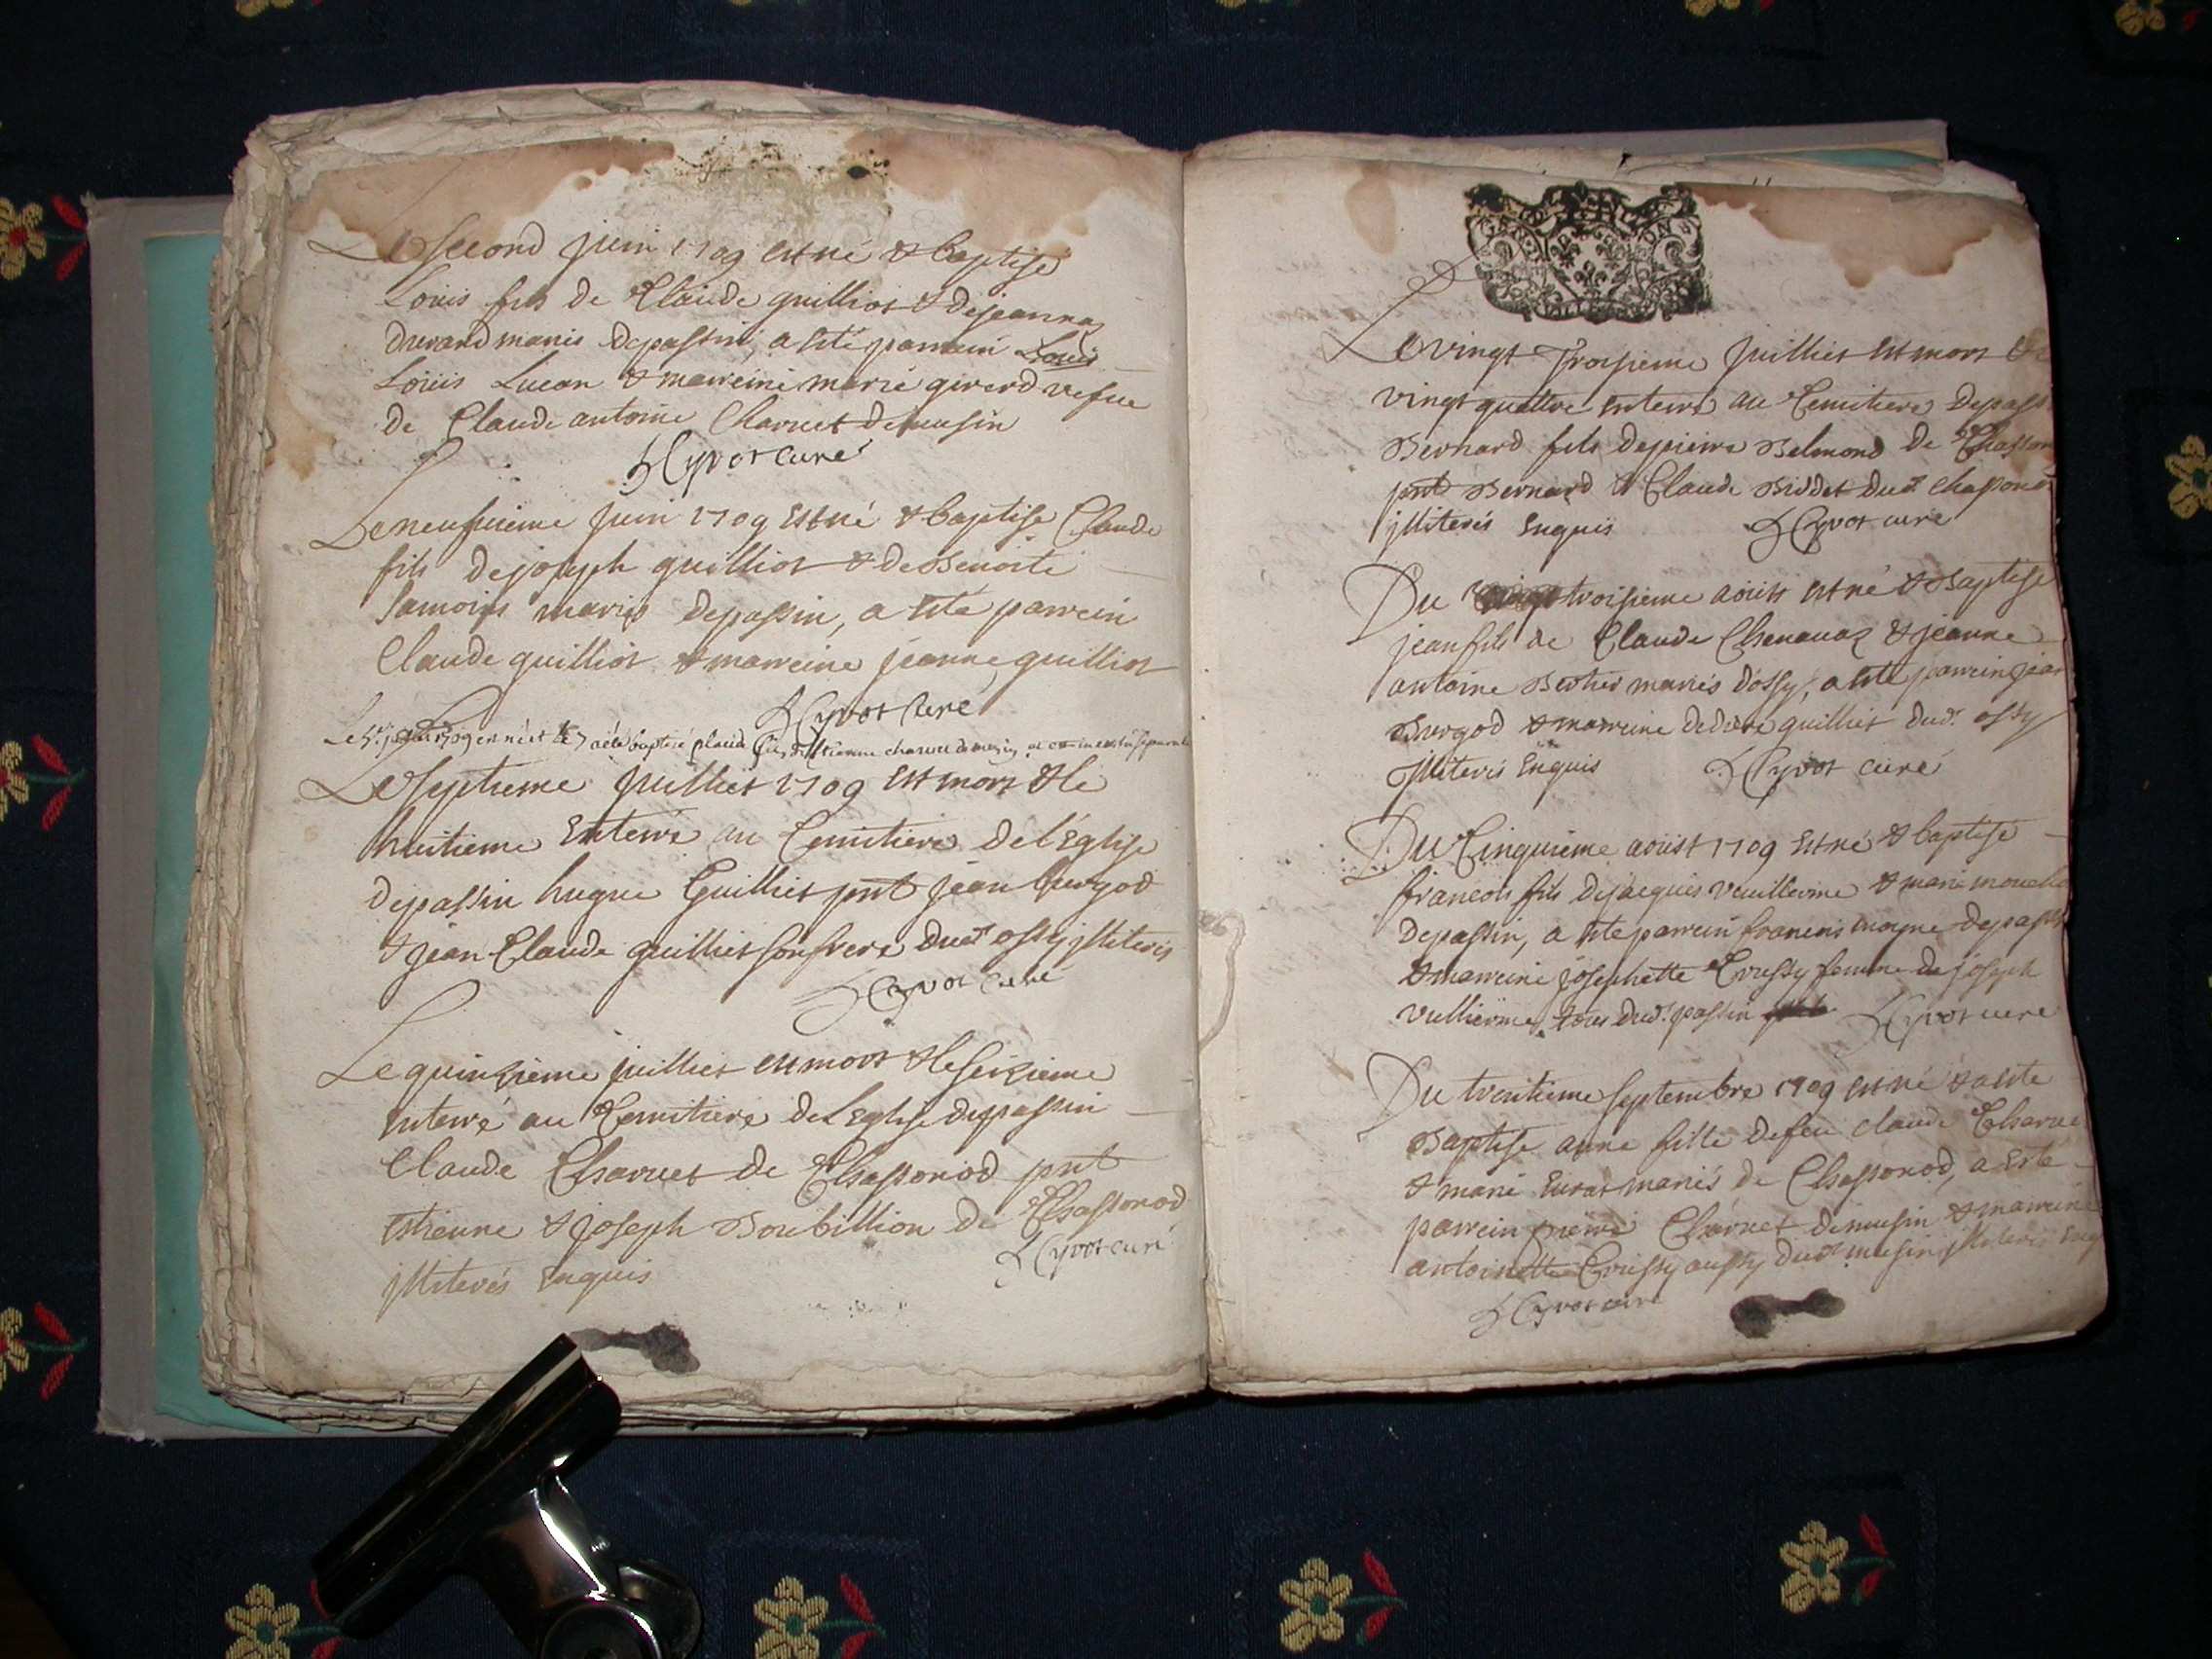 Le second juin 1709 est né & baptisé
Louis fils de Claude guilliot & de jeannaz
durand mariés depassin, a esté parrain Louis
Loüis Lucan & marreine marie girerd vefue
de Claude antoine Charuet de musin
Hyvot curé
Le neufuieme juin 1709 est né & baptisé Claude
fils de joseph guilliot & de Benoite
Jamoins mariés depassin, a esté parrein
Claude guilliot & marreine jeanne guilliot
Hyvot Curé
1709 est né et le 7 a été baptisé claude fils d'Etienne charuet de musin
Le septieme juilliet 1709 est mort & le
huitieme Enterré au Cemitiere de l'Eglise
depassin hugue Guilliet pnt jean burgod
& jean Claude guilliet son frere dudt ossy illiterés
Hyvot Curé
Le quinzieme juilliet est mort & le seizieme
enterré au Cemitiere de l'Eglise depassin
Claude Charuet de Chassonod pnt
Estienne & joseph Boubillion de Chassonod
illiterés Enquis
Hyvot curé
Le vingt Troisieme juilliet est mort &
vingt quattre enterré au Cemitiere depass
Bernard fils de pierre Belmond de Chasson
pnt Bernard & Claude Biddet dudt chassono
illiterés Enquis Hyvot curé
Du troisieme aoüst est né & Baptisé
jean fils de Claude Chenauaz & jeanne
antoine Berthet mariés d'ossy, a esté parrein jean
Burgod & marreine guilliet dudt ossy
illiterés Enquis Hyvot curé
Du Cinquieme aoüst 1709 est né & baptisé
francois fils de jacques vuillerme & marie
depassin, a esté parrein francois moyne depassi
& marreine josephette Croussy femme de joseph
vullierme tous dudt passin Hyvot curé
Du trentieme septembre 1709 est né & a esté
Baptisé anne fille de feu claude Charue
& marie mariés de Chassonod, a esté
parrein pierre Charuet de musin & marreine
antoinette Croussy aussy dudt musin illiterés Enq
Hyvot curé